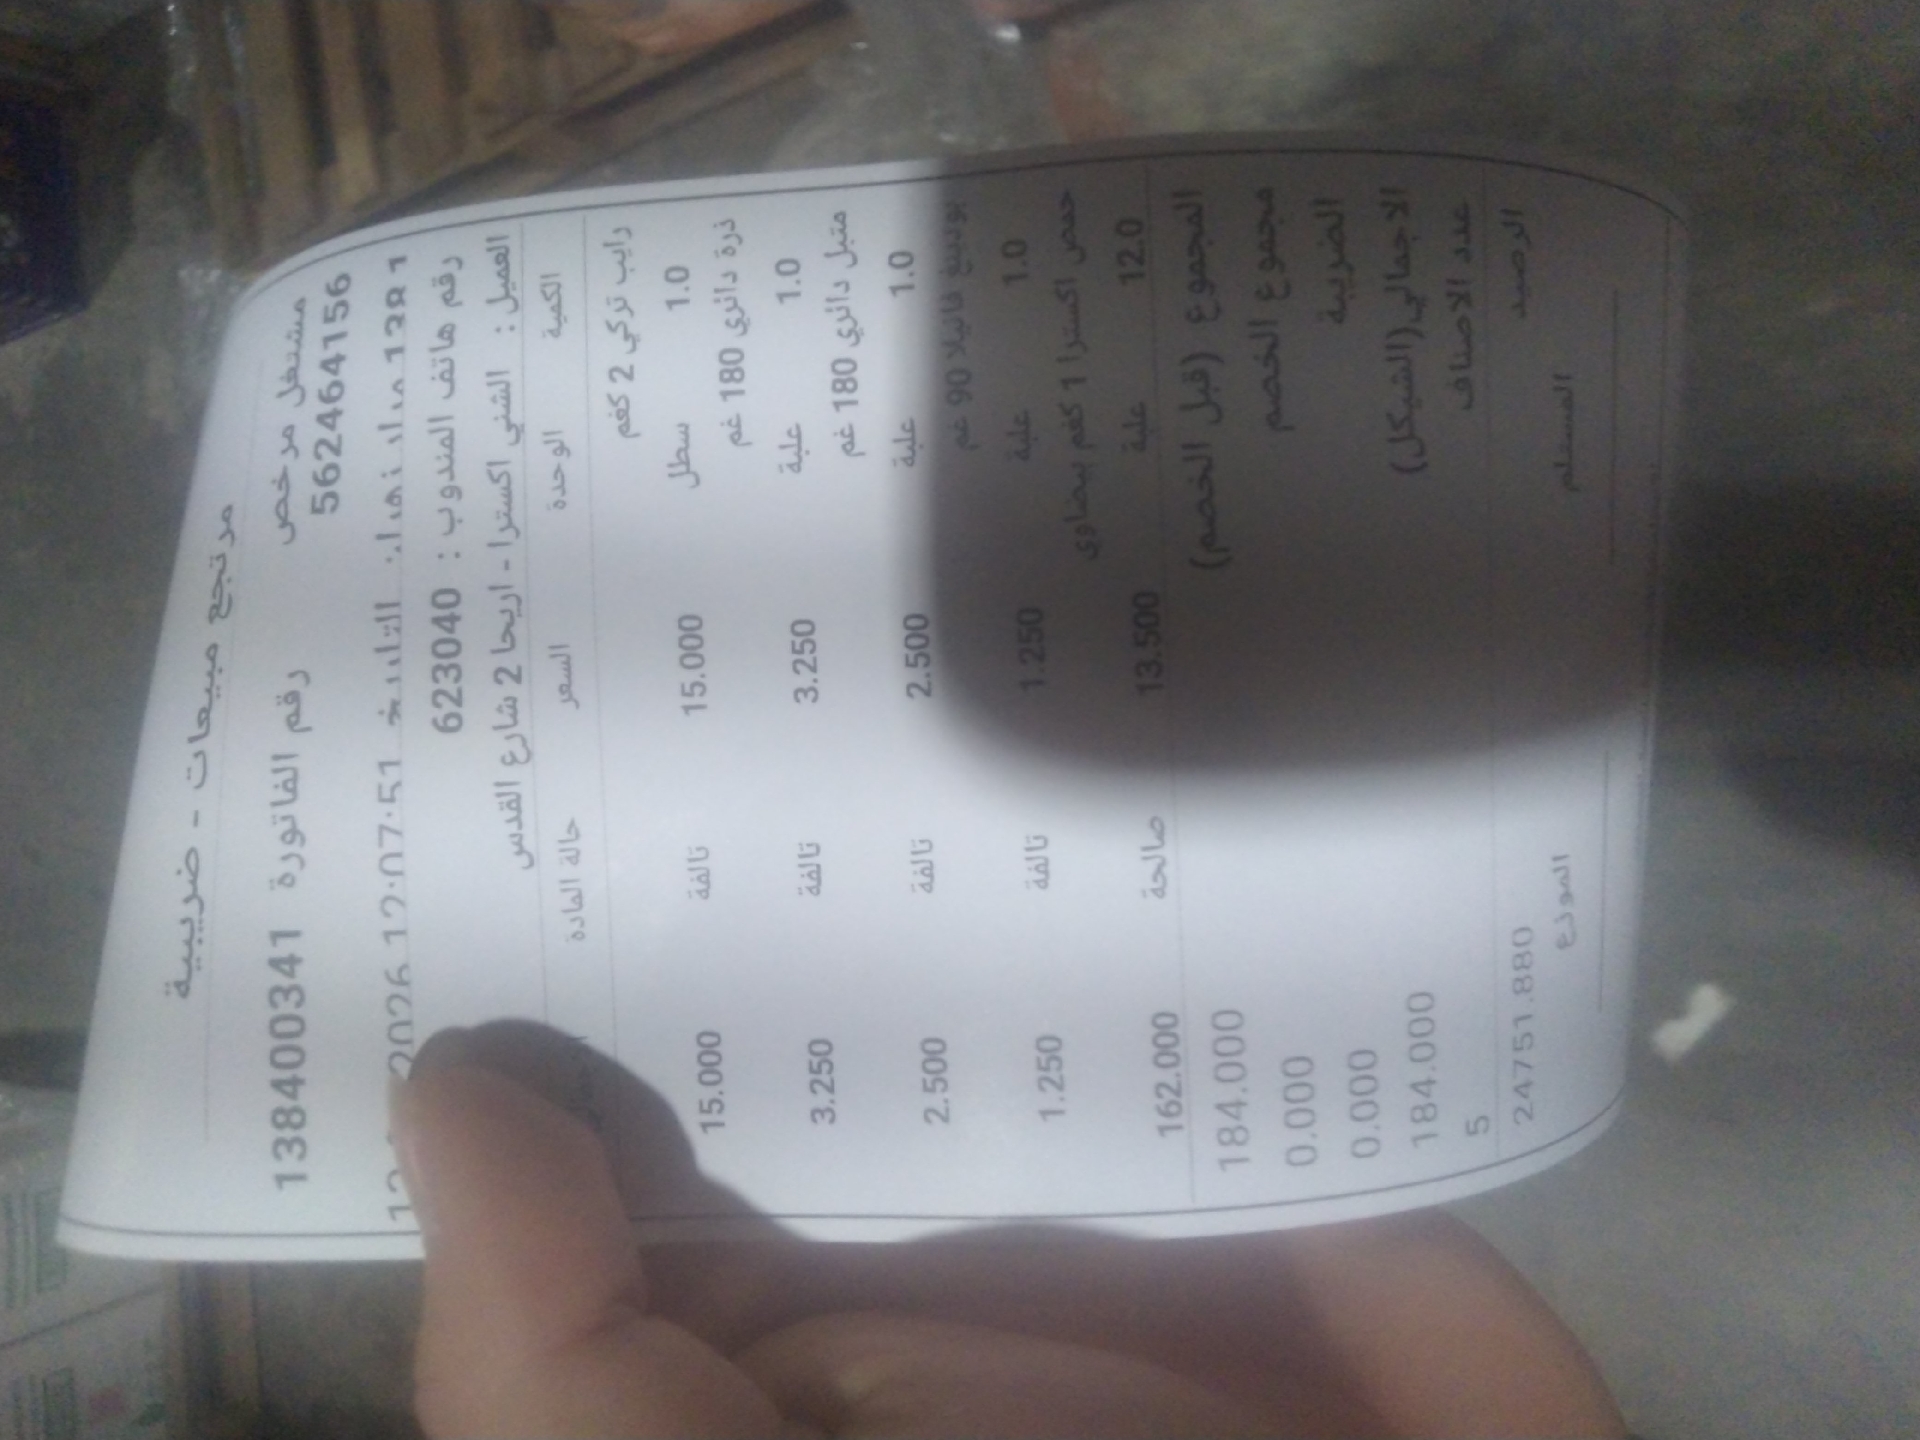 مرتجع مبيعات - ضريبية
مشتغل مرخص 562464156 رقم الفاتورة 138400341
التاريخ 2026 12:07:51
رقم هاتف المندوب : 623040
العميل : الشني اكسترا - اريحا 2 شارع القدس
الكمية الوحدة السعر حالة المادة
رايب تركي 2 كغم
1.0 سطل 15.000 تالفة 15.000
ذرة دائري 180 غم
1.0 علبة 3.250 تالفة 3.250
متبل دائري 180 غم
1.0 علبة 2.500 تالفة 2.500
بودينغ فانيلا 90 غم
1.0 علبة 1.250 تالفة 1.250
حمص اكسترا 1 كغم بيضاوي
12.0 علبة 13.500 صالحة 162.000
المجموع (قبل الخصم) 184.000
مجموع الخصم 0.000
الضريبة 0.000
الاجمالي(الشيكل) 184.000
عدد الاصناف 5
الرصيد 24751.880
المستلم الموزع